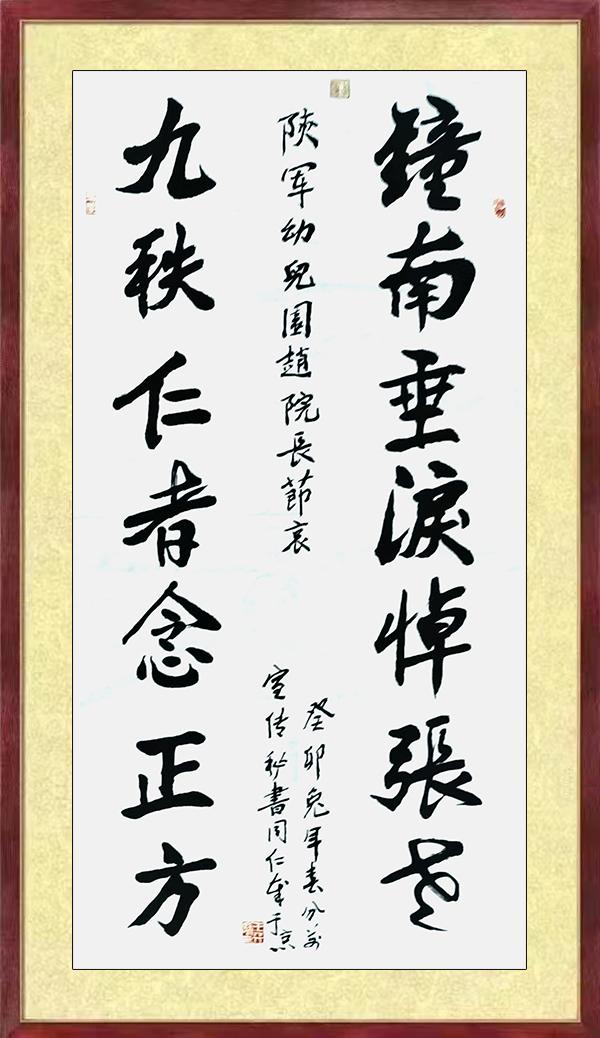 鐘南垂淚悼張老
陝军幼兒園趙院長節哀
癸卯兔年春分前
宣传秘書同仁奉于京
九秩仁者念正方